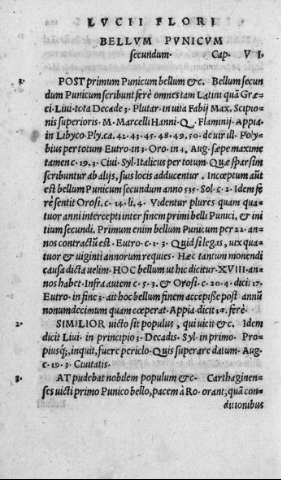 LVCII FLORI
BELLVM PVNICVM
secundum. Cap. VI.
1. POST primum Punicum bellum &c. Bellum secun
dum Punicum scribunt ferè omnes tam Latini quã Græ=
ci. Liui. tota Decade 3. Plutar. in uita Fabij Max. Scipio=
nis superioris. M. Marcelli Hanni. Q. Flaminij. Appia.
in Libyco. Ply. ca. 42. 43. 45. 48. 49. 50. de uir. ill. Poly=
bius per totum. Eutro. in 3. Oro. in 4. Aug. sæpe maxime
tamen c. 19. 3. Ciui. Syl. Italicus per totum. Quæ sparsim
scribuntur ab alijs, suos locis adducentur. Inceptum aũt
est bellum Punicum secundum anno 535. Sol. c. 2. Idem fe
rè sentit Orosi. c. 14. li. 4. Videntur plures quam qua=
tuor anni intercepti inter finem primi belli Punici, & ini
tium secundi. Primum enim bellum Punicum per 22. an=
nos contractũ est. Eutro. c. 3. Quod si legas, uix qua=
tuor & uiginti annorum requies. Hæc tantum monendi
causa dicta uelim. HOC bellum ut hic dicitur. XVIII. an=
nos habet. Infra autem c. 5. 3. & Orosi. c. 20. 4. dicit 17.
Eutro. in fine 3. ait hoc bellum finem accepisse post annũ
nonum decimum quam cœperat. Appia. dicit 16. ferè.
2. SIMILIOR uicto sit populus, qui uicit &c. Idem
dicit Liui. in principio 3. Decadis. Syl. in primo. Pro=
piusq;, inquit, fuere periclo. Quis superare datum. Aug.
c. 19. 3. Ciuitatis.
3. AT pudebat nobilem populum &c. Carthaginen=
ses uicti primo Punico bello, pacem à Ro. orant, quã con=
ditionibus